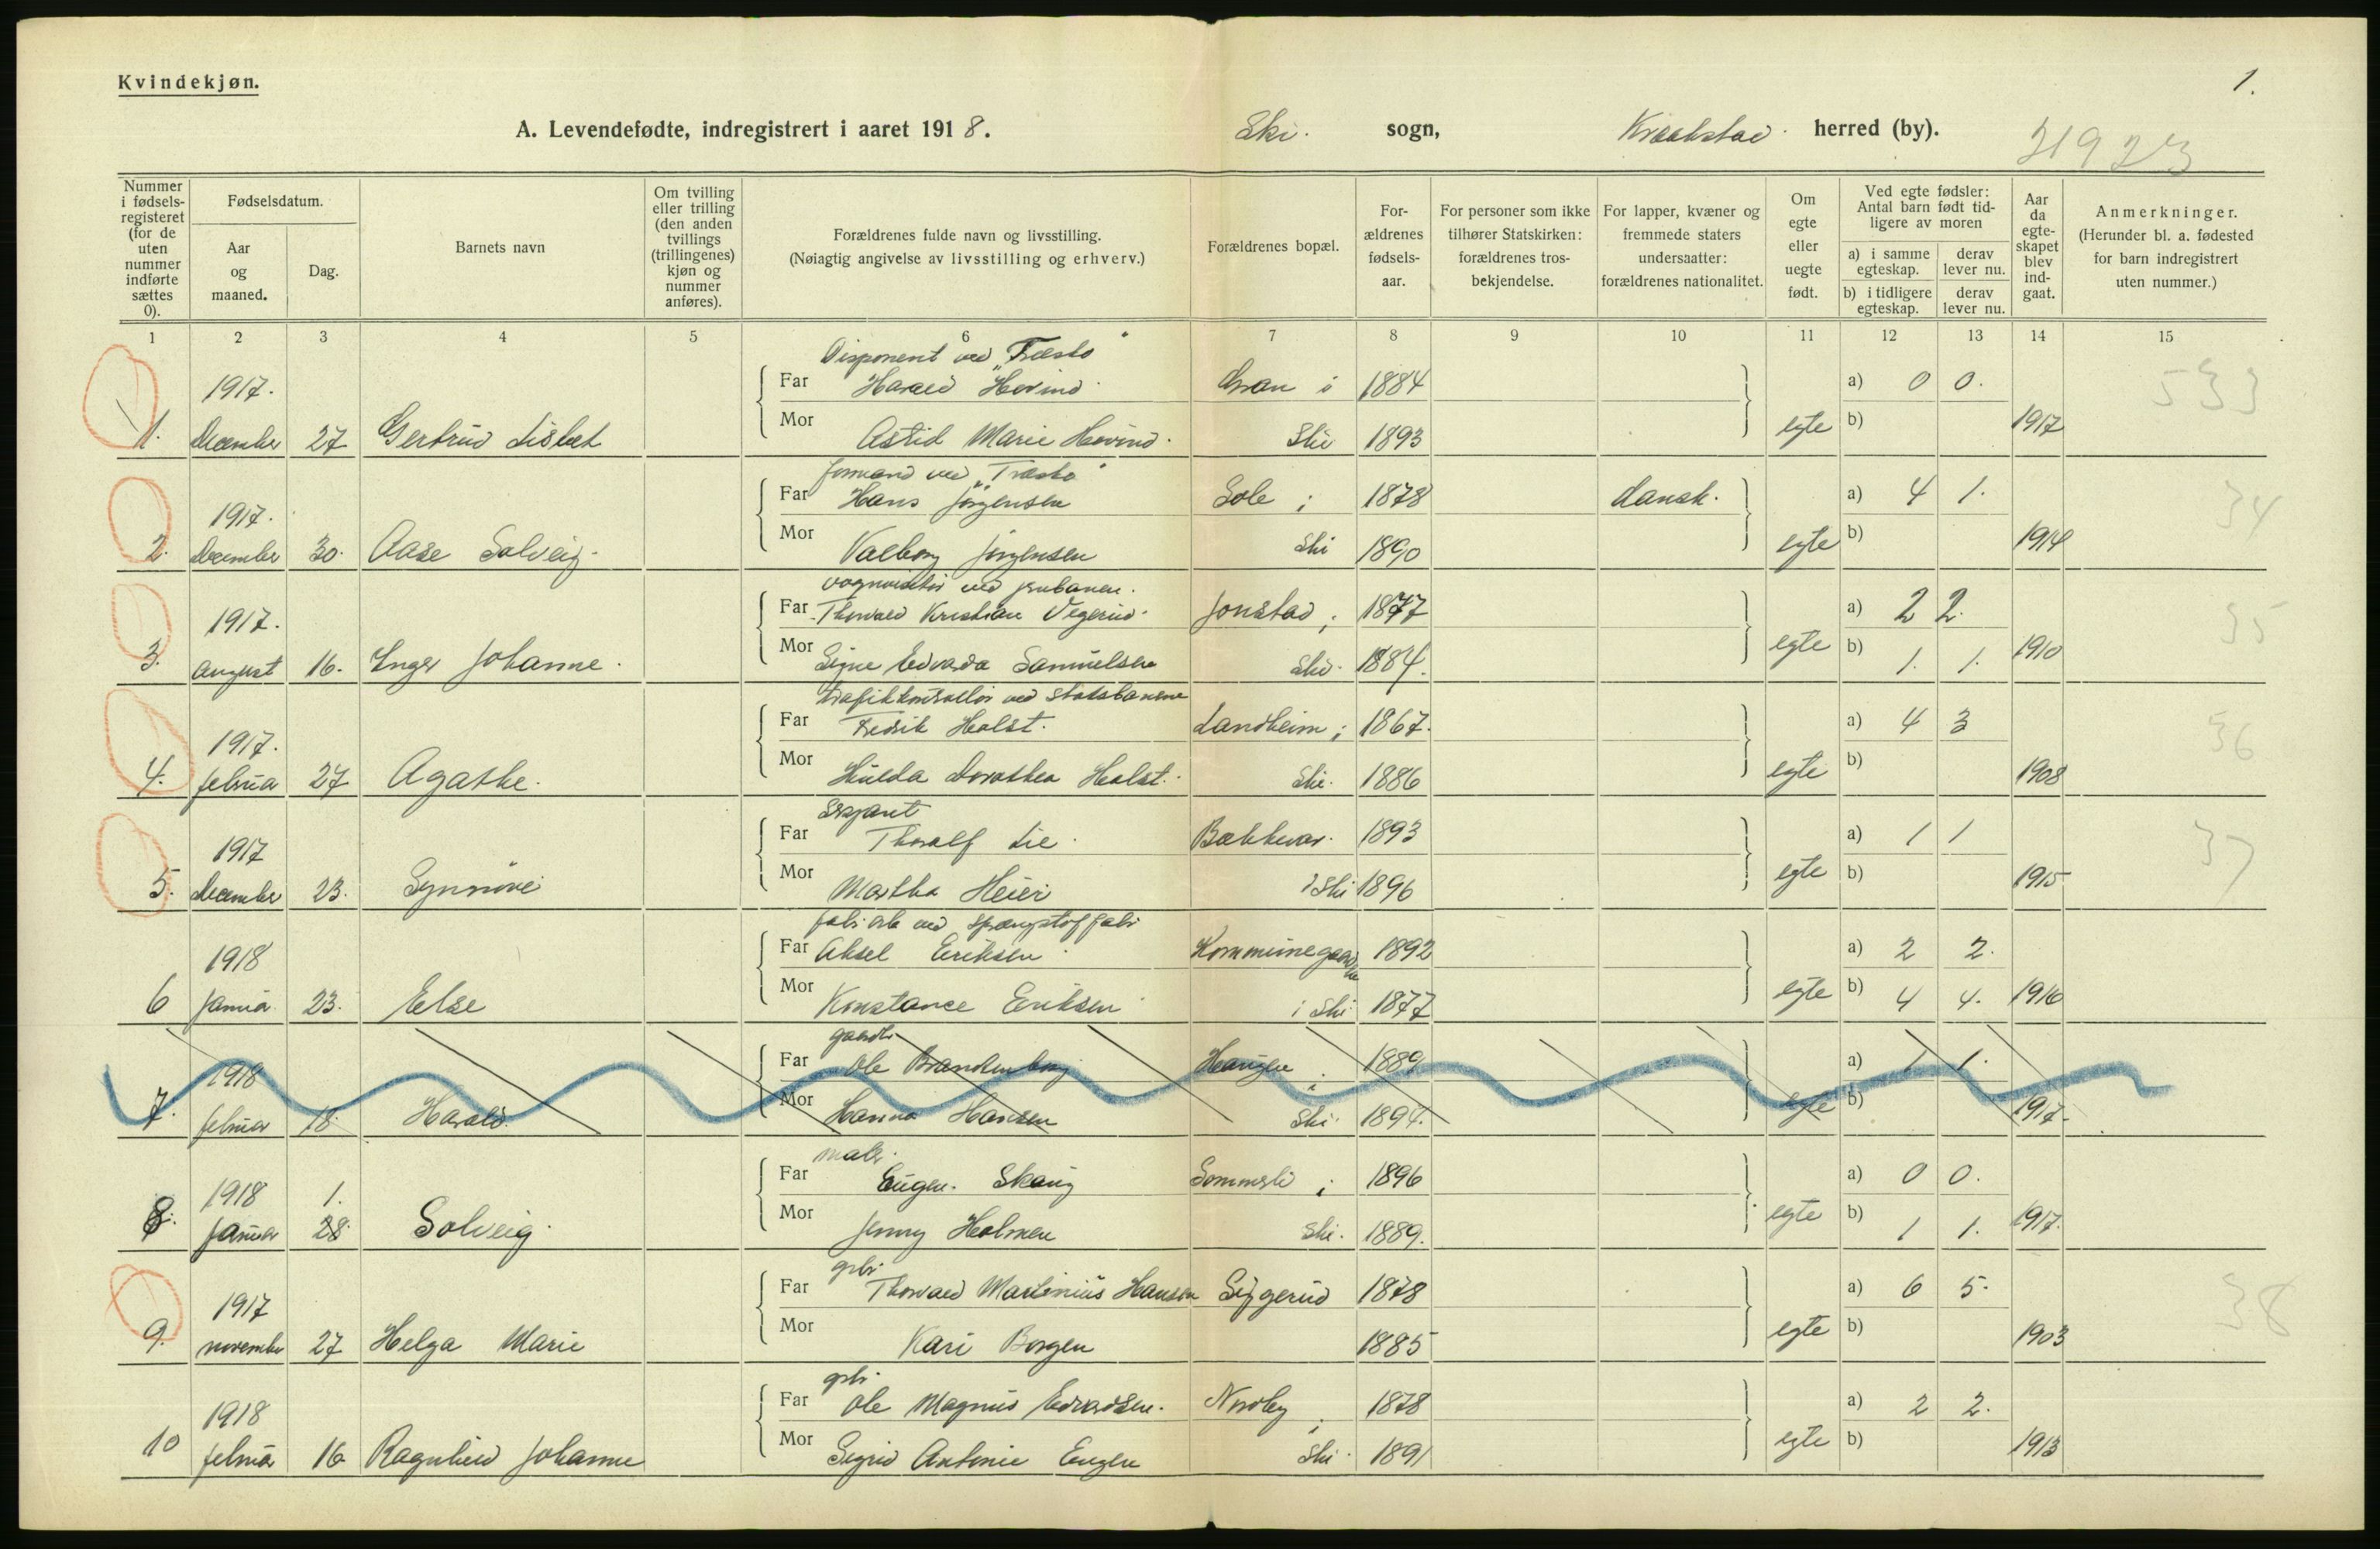 Kvindekjøn.
1.
A. Levendefødte, indregistrert i aaret 1918. Ski. sogn, Kraakstad herred (by).
31923
Nummer i fødsels-registeret (for de uten nummer indførte sættes 0).
Fødselsdatum.
Aar og maaned.
Dag.
Barnets navn
Om tvilling eller trilling (den anden tvillings (trillingenes) kjøn og nummer anføres).
Forældrenes fulde navn og livsstilling.
(Nøiagtig angivelse av livsstilling og erhverv.)
Forældrenes bopæl.
For-ældrenes fødsels-aar.
For personer som ikke tilhører Statskirken: forældrenes tros-bekjendelse.
For lapper, kvæner og fremmede staters undersaatter: forældrenes nationalitet.
Om egte eller uegte født.
Ved egte fødsler: Antal barn født tid-ligere av moren
a) i samme egteskap.
derav lever nu.
b) i tidligere egteskap.
derav lever nu.
Aar da egte-skapet blev ind-gaat.
Anmerkninger.
(Herunder bl. a. fødested for barn indregistrert uten nummer.)
1 2 3 4 5 6 7 8 9 10 11 12 13 14 15
Disponent ved "Træsko"
1917. Far Harald Hovind. i 1884 a) 0 0. 533
1. December 27 Gertrud Lisbet Mor Astid Marie Hovind. Ski 1893 egte b) 1917
formand ved "Træsko"
1917. Far Hans Jørgensen Sole i 1878 dansk. a) 4 1. 34
2. December 30. Aase Solveig. Mor Valborg Jørgensen Ski 1890 egte b) 1914
ved jernbanen.
1917. Far Thorvald Kristian Vegerud. Jonstad i 1877 a) 2 2. 35
3. August 16. Inger Johanne. Mor Signe Edvarda Samuelsen Ski. 1884. egte b) 1. 1. 1910
trafikkontrollør ved statsbanene
1917. Far Fredrik Holst. Landheim i 1867. a) 4 3 36
4. februar 27 Agathe. Mor Hulda Dorothea Holst. Ski. 1886 egte b) 1908
Sersjant
1917 Far Thoralf Lie. Bakkevar. 1893 a) 1 1 37
5. December 23. Synnøve Mor Martha Heier i Ski 1896 egte b) 1915
fabr. arb. ved sprængstoffabr
1918 Far Aksel Eriksen Kommunegaarden 1892 a) 2 2.
6 januar 23. Else Mor Konstance Eriksen i Ski 1877 egte b) 4 4. 1916
gaardbr
1918 Far Ole Brandenborg Haugen i 1889 a) 1 1.
7. februar 18. Harald. Mor Hanna Hansen Ski. 1894. egte b) 1917.
maler.
1918 1. Far Eugen. Skaug Sommerli i 1896 a) 0 0.
8. januar 28. Solveig. Mor Jenny Holmen Ski. 1889. egte b) 1 1. 1917.
gbr.
1917 Far Thorvald Martinius Hansen Siggerud 1878 a) 6 5. 38
9. november 27 Helga Marie Mor Kari Borgen 1885 egte b) 1903
gbr.
1918 Far Ole Magnus Edvardsen. Nordby i 1878 a) 2 2.
10 februar 16 Ragnhild Johanne Mor Sigrid Antonie Engen Ski. 1891 egte b) 1913